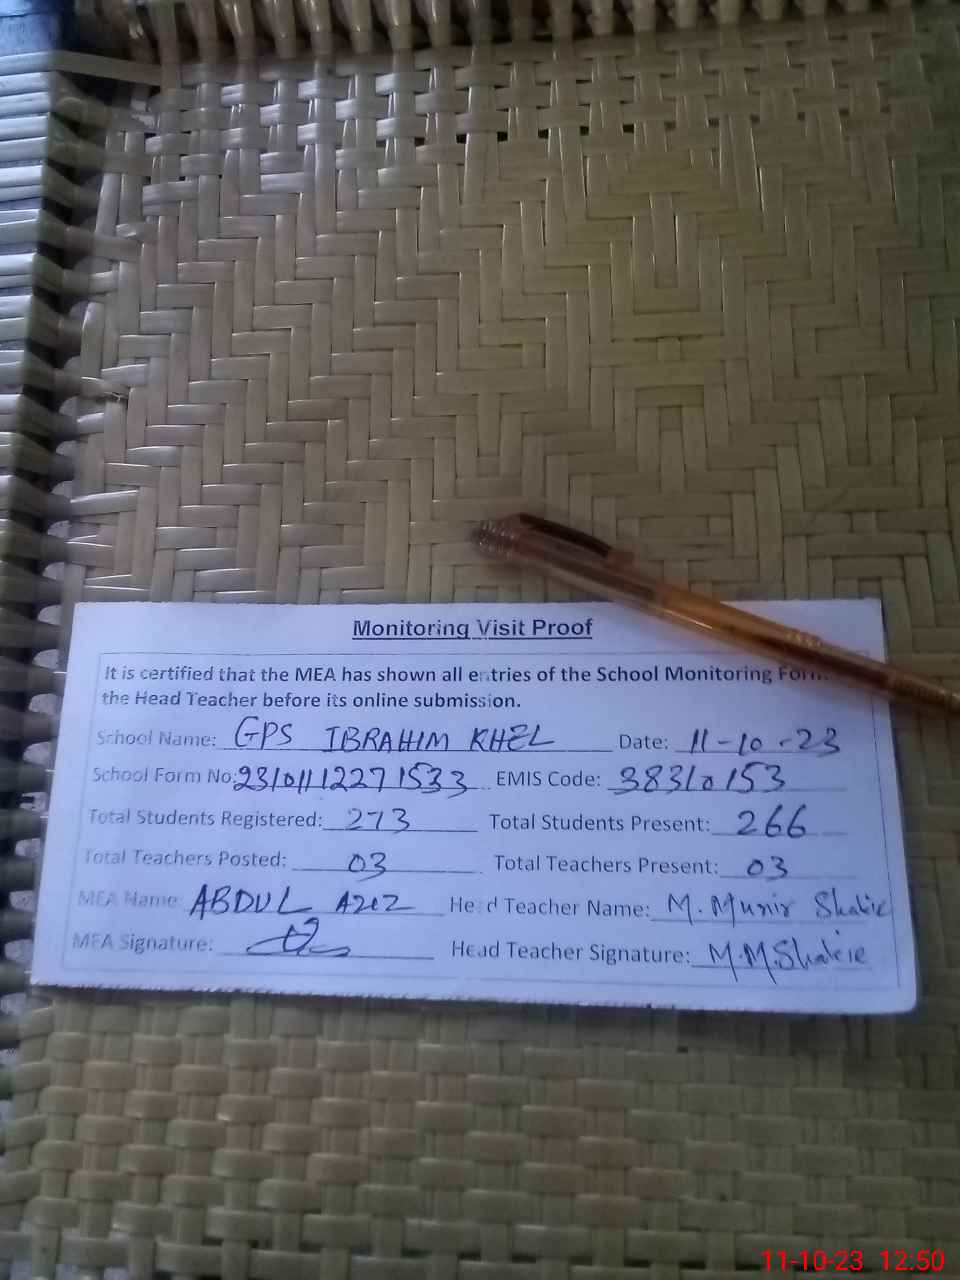 Monitoring Visit Proof
It is certified that the MEA has shown all entries of the School Monitoring Form
the Head Teacher before its online submission.
School Name: GPS IBRAHIM KHEL Date: 11-10-23
School Form No: 23101112271533 EMIS Code: 38310153
Total Students Registered: 273 Total Students Present: 266
Total Teachers Posted: 03 Total Teachers Present: 03
MEA Name: ABDUL AZIZ Head Teacher Name: M. Munir Shakir
MEA Signature: Head Teacher Signature: M.M.Shakir
11-10-23 12:50